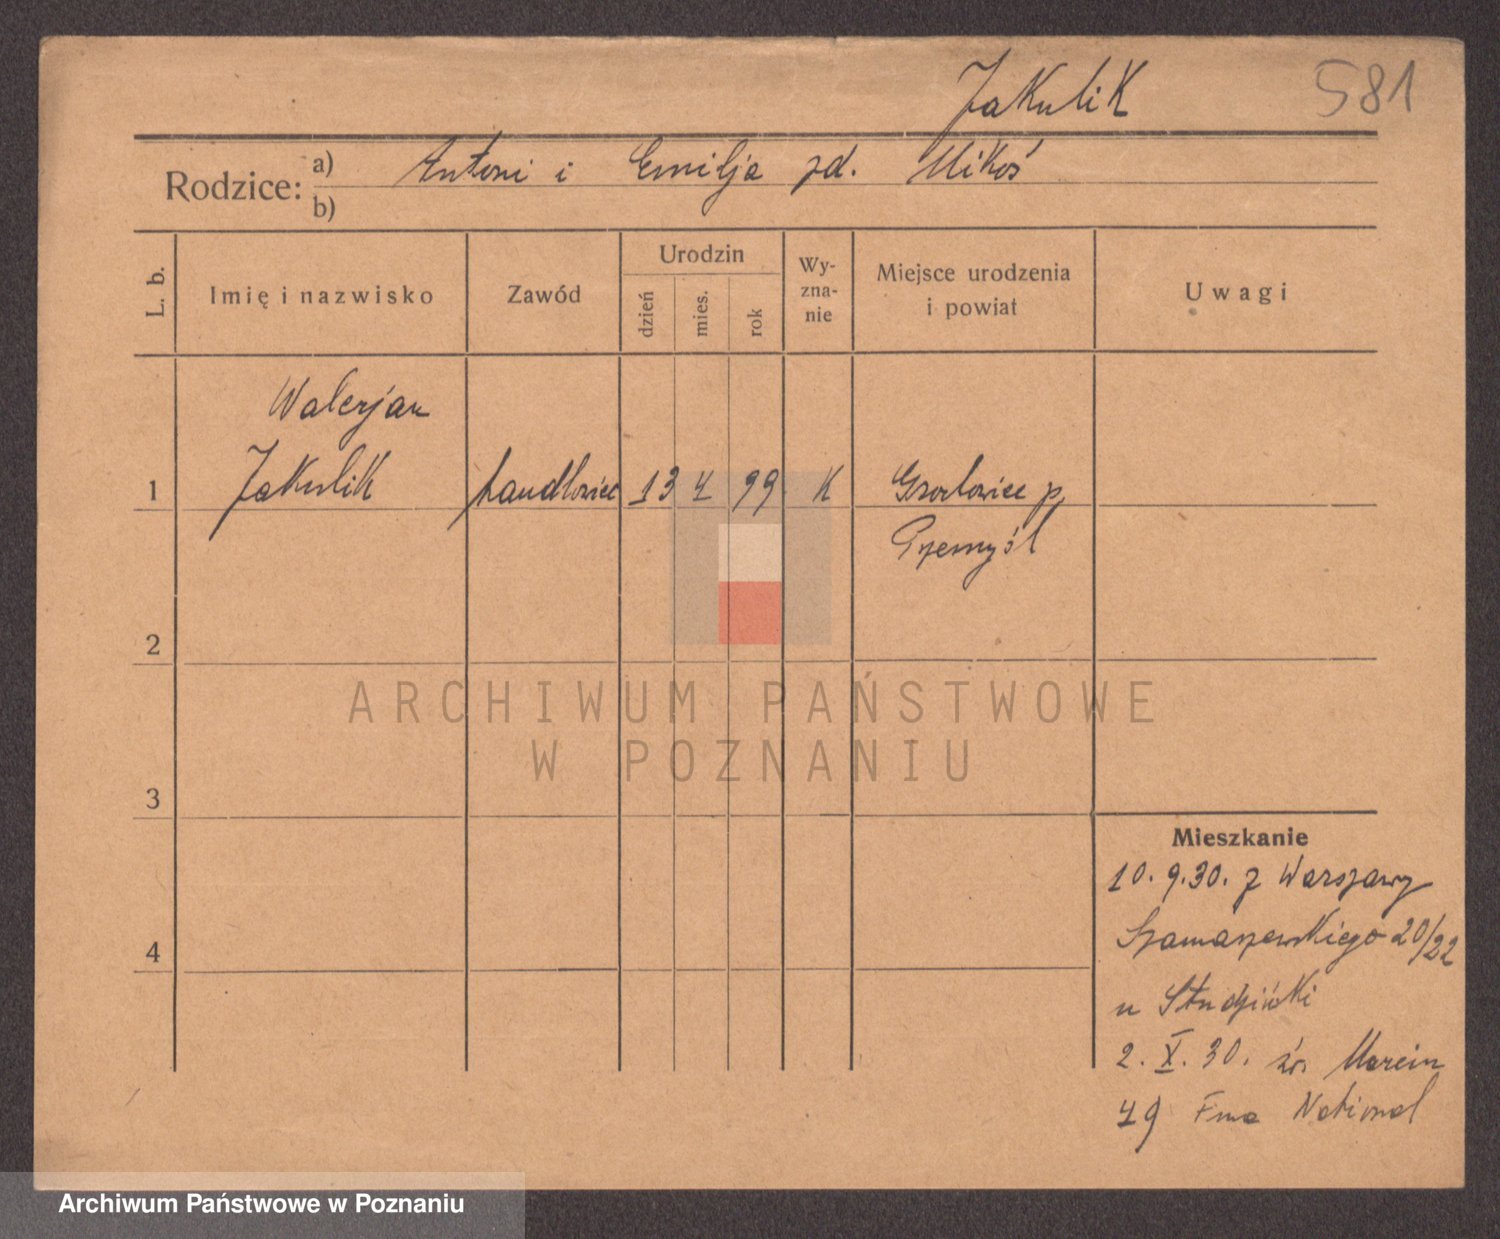 Jakulik
581
Rodzice: a) Antoni i Emilja zd. Mikoś
b)
L. b.
Imię i nazwisko
Zawód
Urodzin
dzień
mies.
rok
Wy-
zna-
nie
Miejsce urodzenia
i powiat
Uwagi
Walerjan
1 Jakulik handlowiec 13 4 99 K Grochowice p.
Przemyśl
2
3
4
ARCHIWUM PAŃSTWOWE
W POZNANIU
Mieszkanie
10. 9.30. z Warszawy
Szamarzewskiego 20/22
u Studziński
2. X. 30. św. Marcin
49 Fma National
Archiwum Państwowe w Poznaniu